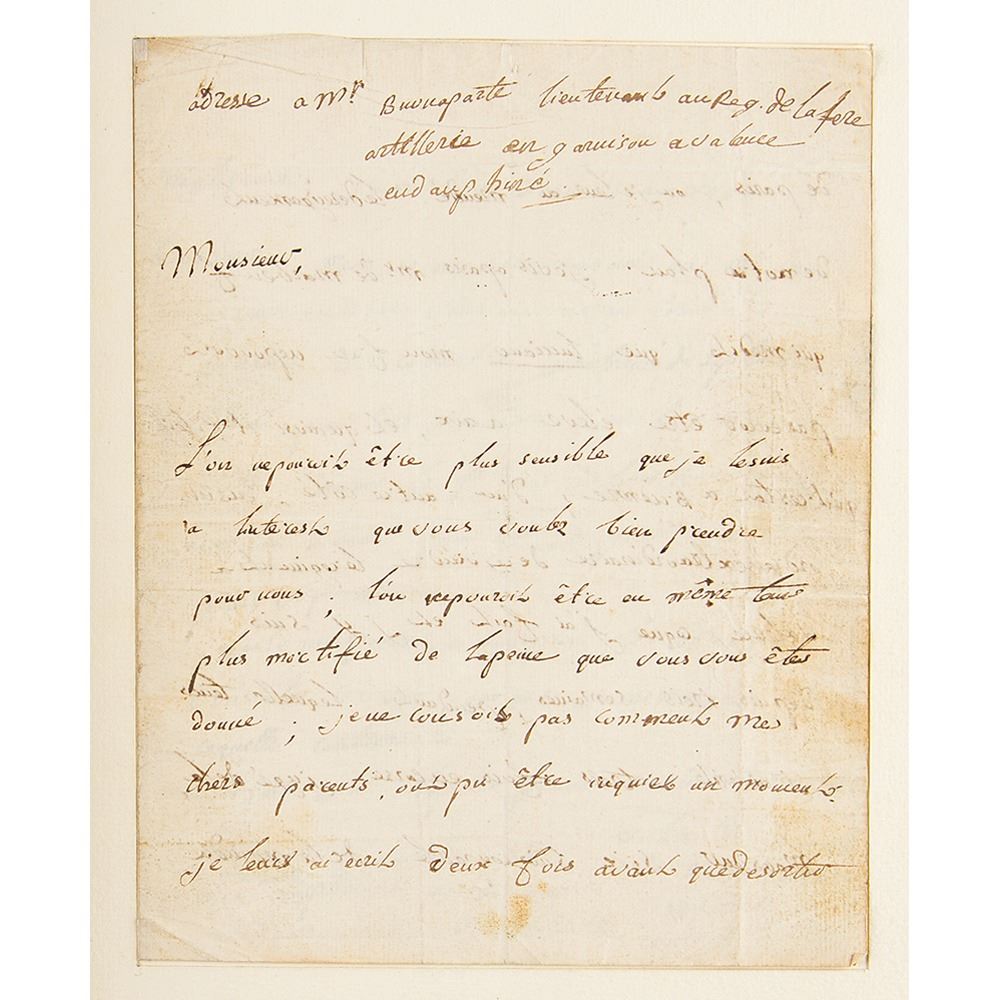 adresse a Mr Buonaparte lieutenant au Reg. de la fere
artillerie en garnison a valence
en dauphiné.
Monsieur,
L'on ne pouroit être plus sensible que je le suis
a linterest que vous voulez bien prendre
pour nous ; l'on ne pouroit être en même tems
plus mortifié de la peine que vous vous êtes
donné ; je ne consois pas comment mes
chers parents, ont pu être inquiet un moment.
je leurs ai ecrit deux fois avant que de sortir